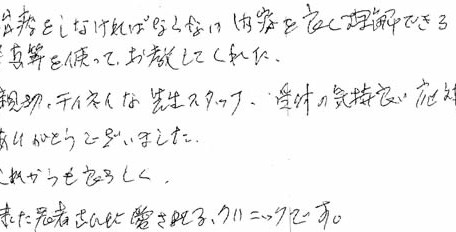 治療をしなければならない内容を良く理解できる
写真等を使って、お教えしてくれた。
親切、テイネイな先生スタッフ、受付の気持良い応対
ありがとうございました。
これからも宜ろしく。
来た患者さんに愛されてる、クリニックです。